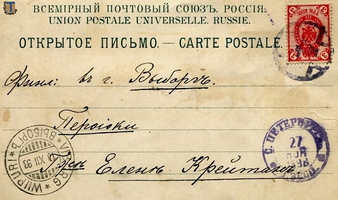 ВСЕМІРНЫЙ ПОЧТОВЫЙ СОЮЗЪ. РОССІЯ.
UNION POSTALE UNIVERSELLE. RUSSIE.
ОТКРЫТОЕ ПИСЬМО. — CARTE POSTALE.
въ г. Выборгъ.
Еленѣ
WIBORG
ВЫБОРГЪ
WIIPURI
XII 98
С. ПЕТЕРБУРГЪ
27
НОЯ
1898